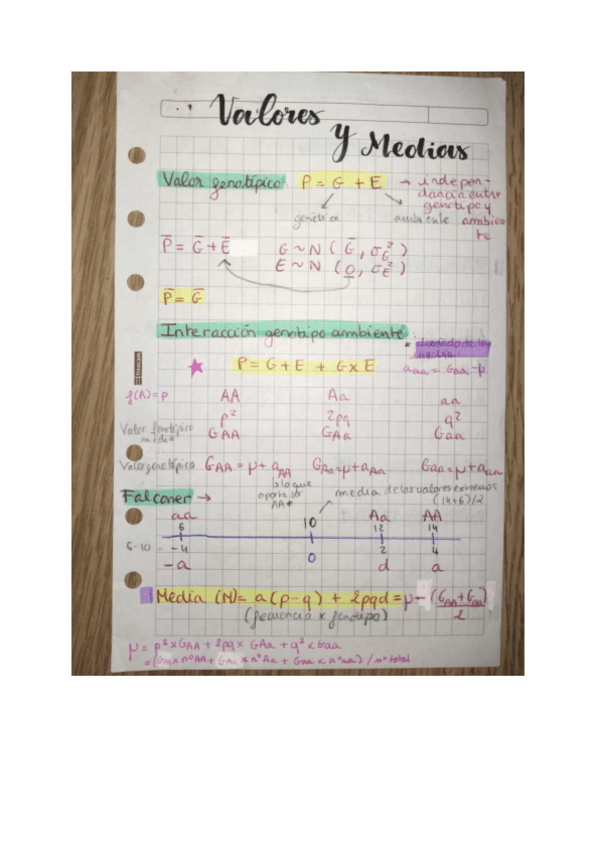 Valores
y Medias
Valor genotípico: P = G + E → indepen-
dancia entre
genotipo y
genética ambiente ambien
te
P̄ = Ḡ + Ē G ~ N ( Ḡ , σ²G )
E ~ N ( 0 , σ²E )
P̄ = Ḡ
Interacción genotipo ambiente:
P = G + E + G x E
f(A) = p AA Aa aa
p² 2pq q²
Valor fenotípico
medio GAA GAa Gaa
Valor genotípico GAA = μ + aAA GAa = μ + aAa Gaa = μ + aaa
lo que
aporta ser
AA
Falconer → media de los valores extremos
(14+6)/2
aa 10 Aa AA
6 12 14
6-10 -4 0 2 4
-a d a
Media (M) = a(p-q) + 2pqd = μ - (GAA + Gaa)
2
(frecuencia x fenotipo)
μ = p² x GAA + 2pq x GAa + q² x Gaa
= (GAA x nº AA + GAa x nº Aa + Gaa x nº aa) / nº total